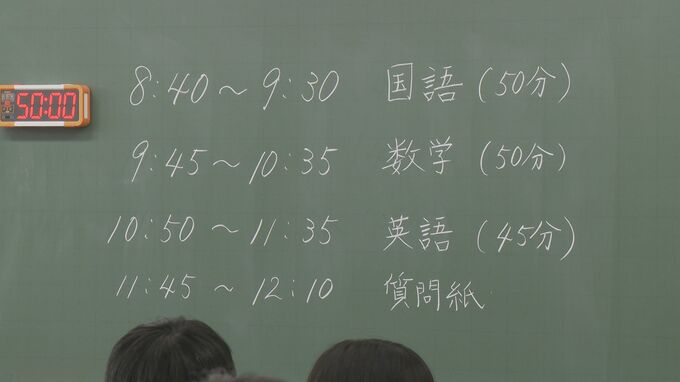 50:00
8:40～9:30 国語(50分)
9:45～10:35 数学(50分)
10:50～11:35 英語(45分)
11:45～12:10 質問紙